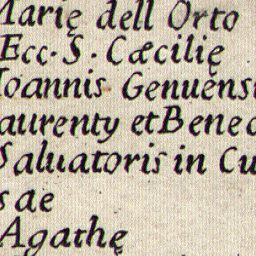 Marię dell Orto
Ecc. S. Cæcilię
Ioannis Genuensi
aurenty et Bene
Saluatoris in Cu
s ae
Agathę